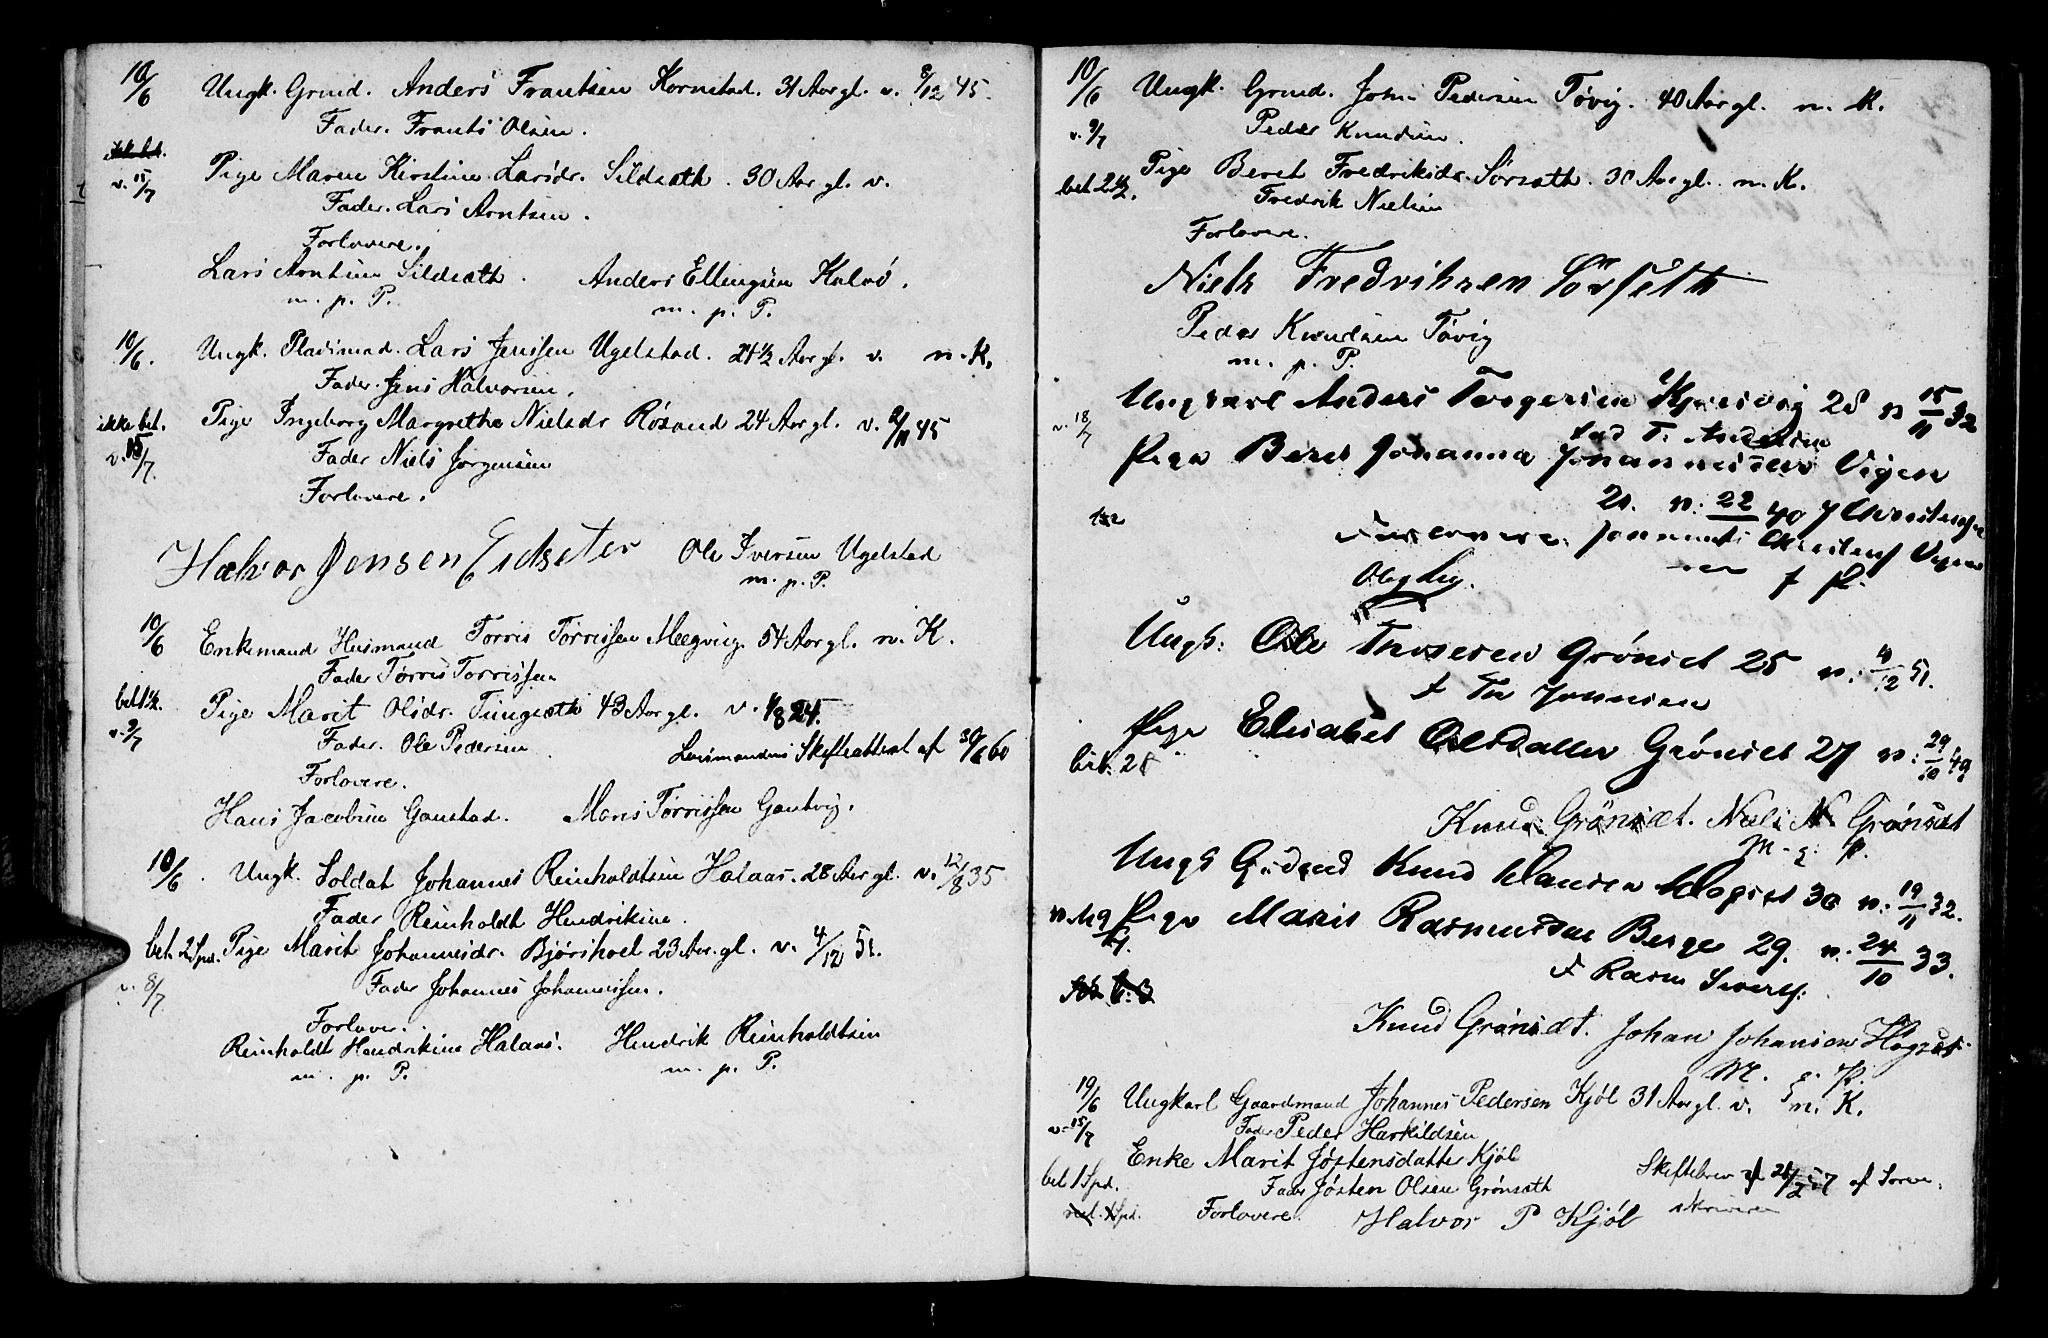 10/6 Ungk. Grmd. Anders Frantsen Kornstad. 31 Aar gl. v. 8/12 45.
Fader. Frants Olsen.
ikke bet.
v. 15/7 Pige Maren Kirstine Larsdr. Sildsæth. 30 Aar gl. v.
Fader. Lars Arntsen.
Forlovere.
Lars Arntsen Sildsæth. Anders Ellingsen Kalvø.
m. p. P. m. p. P.
10/6. Ungk. Pladsmd. Lars Jenssen Ugelstad. 28½ Aar gl. v. n. K.
Fader. Jens Halvorsen.
ikke bet. Pige Ingeborg Margrethe Nielsdr Røsand 24 Aar gl. v. 2/11 45
v. 15/7. Fader Niels Jørgensen
Forlovere.
Halvor Jensen Eidseter Ole Iversen Ugelstad
m. p. P.
10/6 Enkemand Husmand Torris Torrissen Meegvig 54 Aar gl. n. K.
Fader Tørris Torrissen
bet 1½. Pige Marit Olsdr. Tungsæth 43 Aar gl. v. 1/8 24.
v. 9/7 Fader. Ole Pedersen Lensmandens Skifteattest af 30/6 60
Forlovere.
Hans Jacobsen Gaustad. Mons Tørrissen Gautvig.
10/6. Ungk. Soldat Johannes Reinholdtsen Halaas. 28 Aar gl. v. 12/8 35
Fader Reinholdt Hendriksen.
bet. 2 Spd. Pige Marit Johannesdr. Bjørshoel 23 Aar. gl. v. 4/12 51.
v. 8/7. Fader Johannes Johannessen.
Forlover.
Reinholdt Hendriksen Halaas. Hendrik Reinholdtsen
m. p. P. m. p. P.
10/6 Ungk. Grmd. John Pedersen Tøvig. 40 Aar gl. n. K.
v. 9/7 Peder Knudsen.
bet 2½. Pige Beret Fredriksdr. Sørsæth. 30 Aar gl. n. K.
Fredrik Nielsen
Forlovere.
Niels Fredriksen Sørseth
Peder Knudsen Tøvig
m. p. P.
Ungkarl Anders Torgersen 28 v 15/11 32
v. 18/7 fad T. Andersen
Pige Beret Johanna Johannesdr Vigen
21. v. 22 40 f
Vigen
f P.
Ungk: Ole Thoresen Grønset 25 v. 4/12 51.
f Tor Johnsen
Pige Elisabet Olsdatter Grønset 27 v. 29/10 49
bet. 2
Knud Grönsæt. Niels N. Grønsæt
M. p. P.
Ungk Knud Hansen Hogset 30 v. 19/11 32.
Pige Marit Rasmusdr Berge 29. v. 24/10 33.
f Rasm Siverts.
Knud Grönsæt. Johan Johansen Hogset
M. p. P.
19/6 Ungkarl Gaardmand Johannes Pedersen Kjøl 31 Aar gl. v. n. K.
v. 15/7 Fader Peder Harkildsen
Enke Marit Jøstensdatter Kjøl
bet 1 Spd. Fader Jøsten Olsen Grønsæth Skiftebrev af 28/2 57 af Soren-
rest. Spd. Forlovere. Halvor P Kjøl skriveren